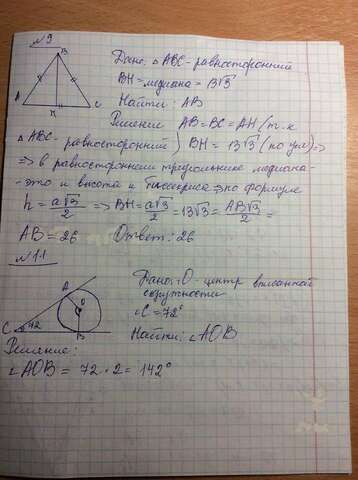 №9
B
Дано: △ABC - равносторонний
BH = медиана = 13√3
A
C
H
Найти: AB
Решение AB = BC = AH (т.к
△ABC - равносторонний) BH = 13√3 (по усл) =>
=> в равностороннем треугольнике медиана -
- это и высота и биссектриса => по формуле
h = a√3/2 => BH = a√3/2 = 13√3 = AB√3/2 =
AB = 26 Ответ: 26
№11
Дано: O - центр вписанной
окружности
A
O
∠C = 72°
C
72
B
Найти: ∠AOB
Решение:
∠AOB = 72 · 2 = 142°